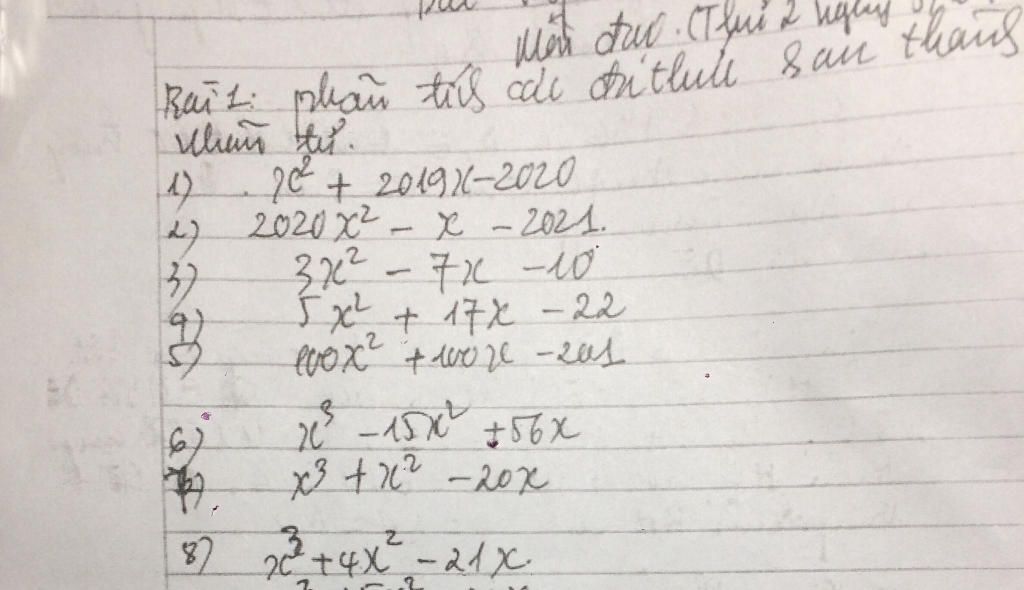 Môn đại. (Thứ 2 ngày
Bài 1: phân tích các đa thức sau thành
nhân tử.
1) x² + 2019x - 2020
2) 2020x² - x - 2021.
3) 3x² - 7x - 10
4) 5x² + 17x - 22
5) x² + 100x
6) x³ - 15x² + 56x
7) x³ + x² - 20x
8) x³ + 4x² - 21x.